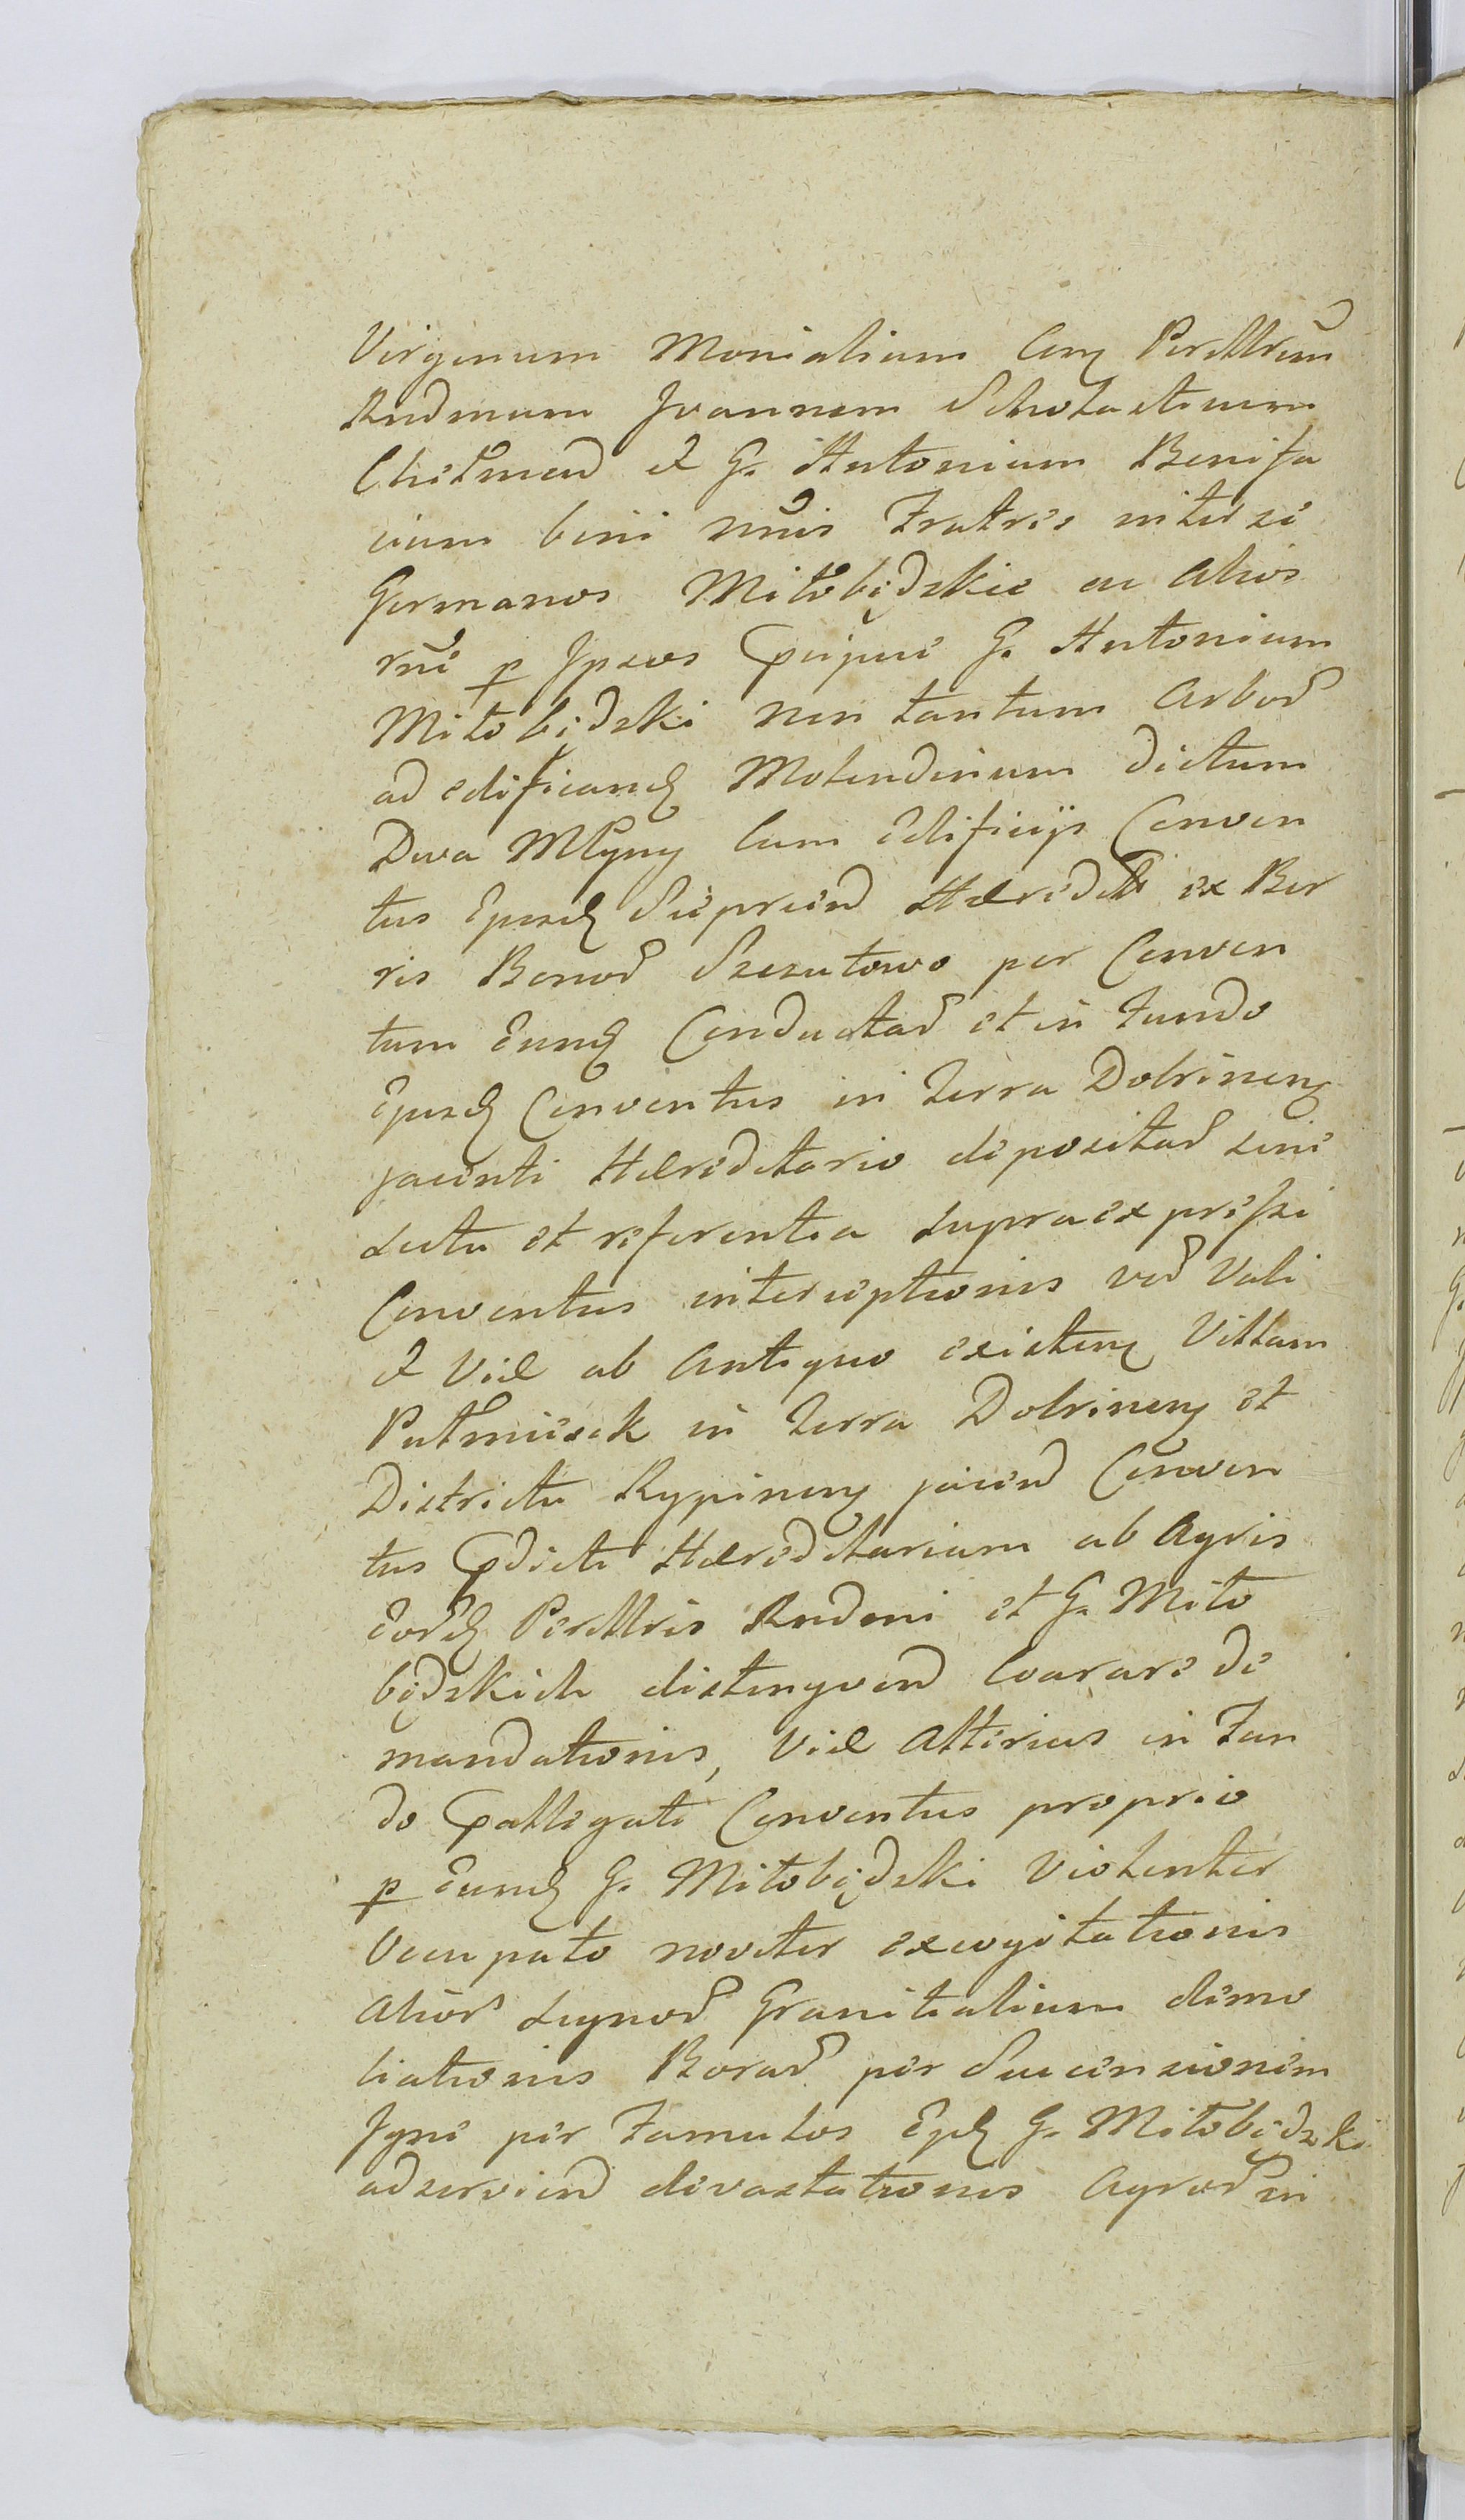 Virginum Monialium Cenz Perillrem
Rndmum Joannem Scholasticum
Chełmen et G. Antonium Bonifa
cium bini nnis Fratres inter se
Germanos Miłobędzkie ac Alios
rne p Ipsos Cpcipue G. Antonium
Miłobędzki non tantum Arbor
ad edificand Molendinum dictum
Dwa Młyny cum Edificijs Conven
tus Ejusd Sieprcen Hæredtti ex Bor
ris Bonor Szczutowo per Conven
tum Eund Conductar et in Fundo
Ejusd Conventus in Terra Dobrinen
jacenti Hæreditario depositar sine
scitu et referentia supraexpressi
Conventus interceptionis ver Vali
et Viæ ab Antiquo existen Villam
Pułmiesck in Terra Dobrinen et
Districtu Rypinen jacen Conven
tus Cpdicti Hæreditarium ab Agris
Eord Perillris Rndmi et G. Miło
będzkich distingven Coarare de
mandationis, Viæ Alterius in Fun
do Cpallegati Conventus proprio
p Eund G. Miłobędzki Violenter
Occupato noviter excogitationis
Alior Lignor Granitialium demo
liationis Borar per Succensionem
Igne per Famulos Ejd G. Miłobędzki
adservien devastationis Agror in